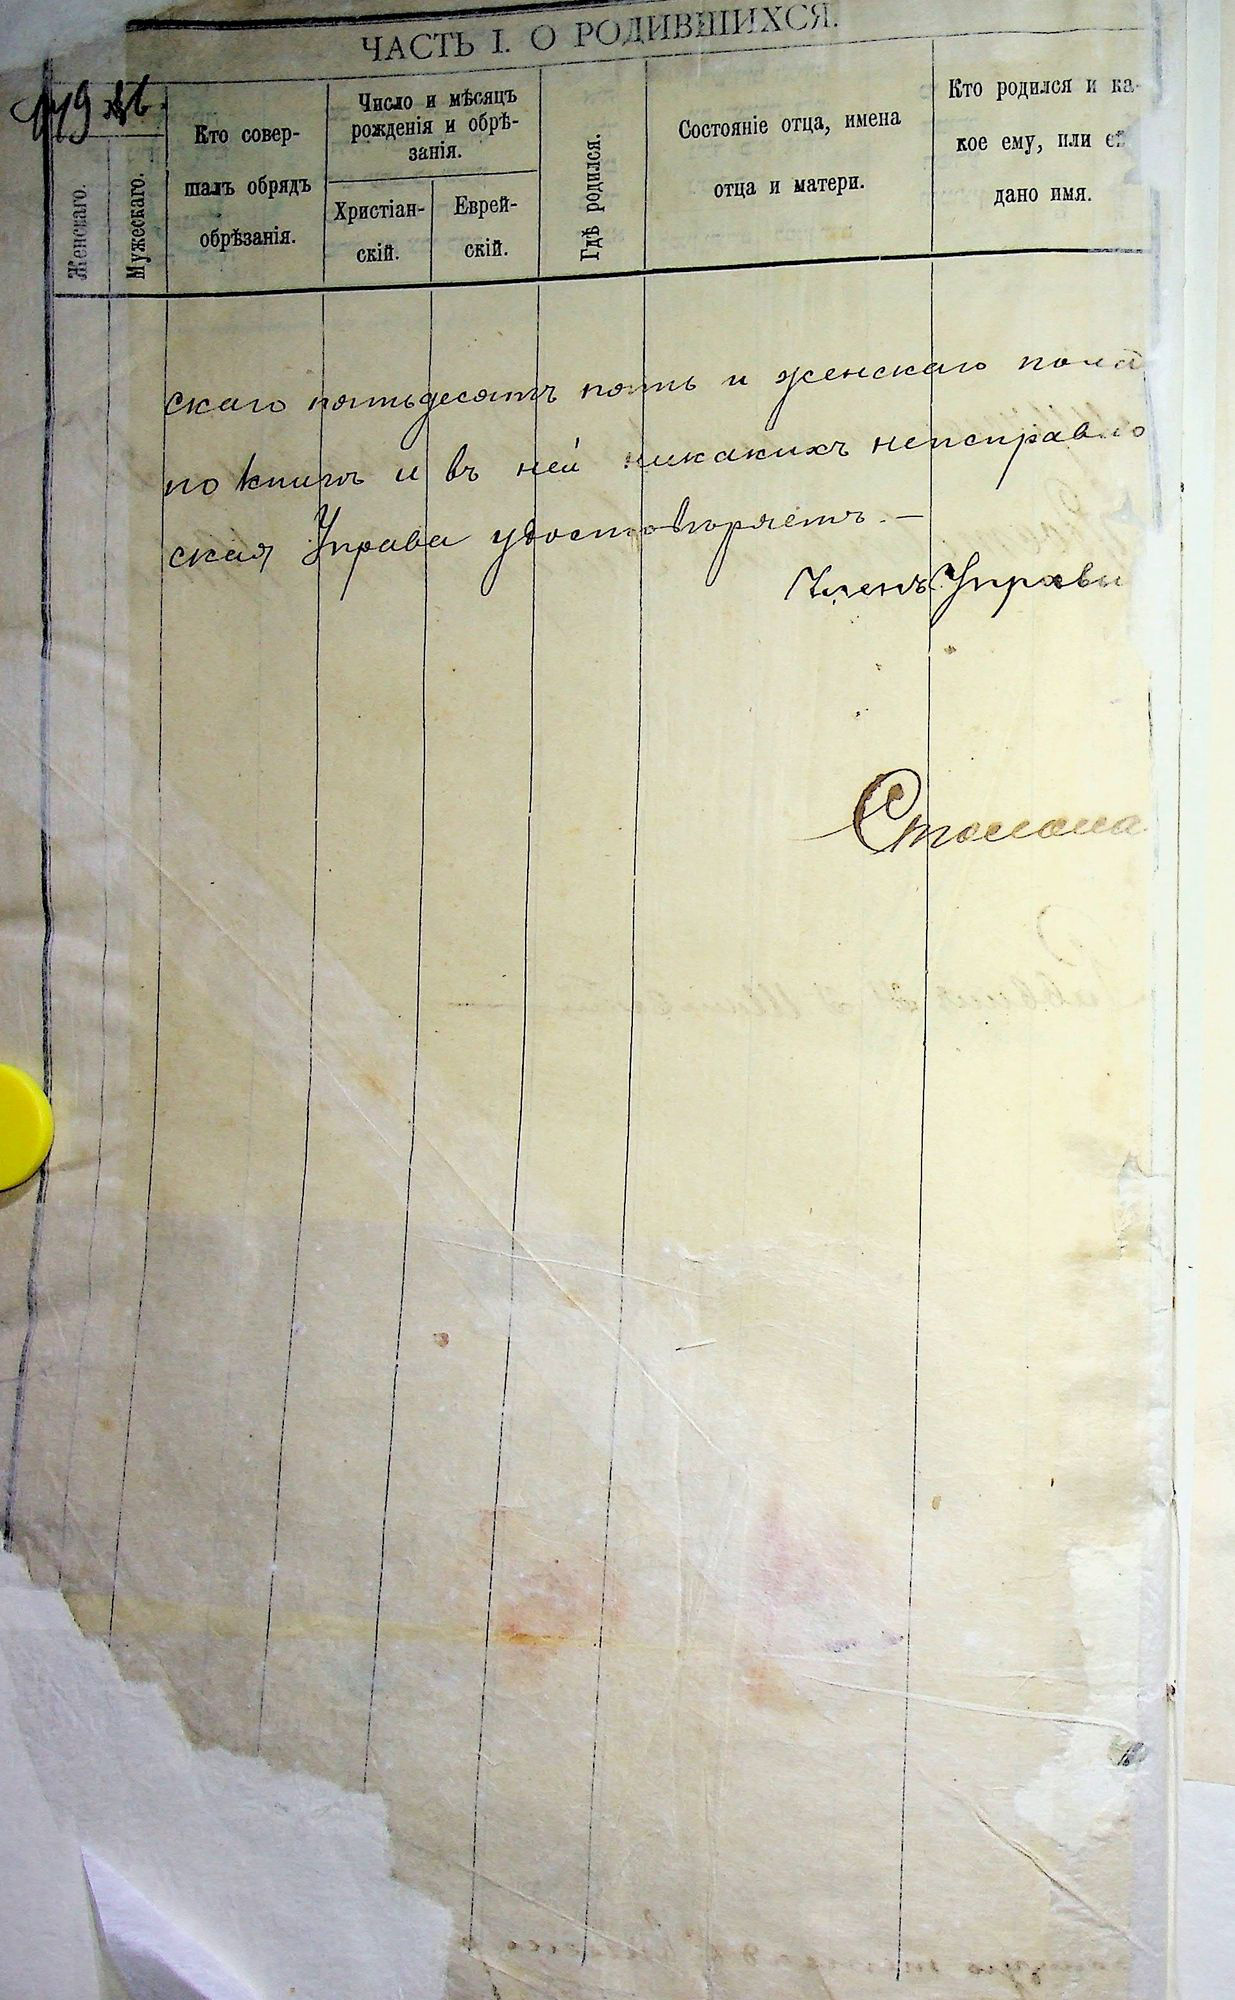 ЧАСТЬ I. О РОДИВШИХСЯ.
Женскаго.
Мужескаго.
Кто совер-
шалъ обрядъ
обрѣзанія.
Число и мѣсяцъ
рожденія и обрѣ-
занія.
Христіан-
скій.
Еврей-
скій.
Гдѣ родился.
Состояніе отца, имена
отца и матери.
Кто родился и ка-
кое ему, или ей
дано имя.
скаго пятьдесятъ пять и женскаго пола
по книгѣ и въ ней никакихъ неисправно
ская Управа удостовѣряетъ. —
Членъ Управы